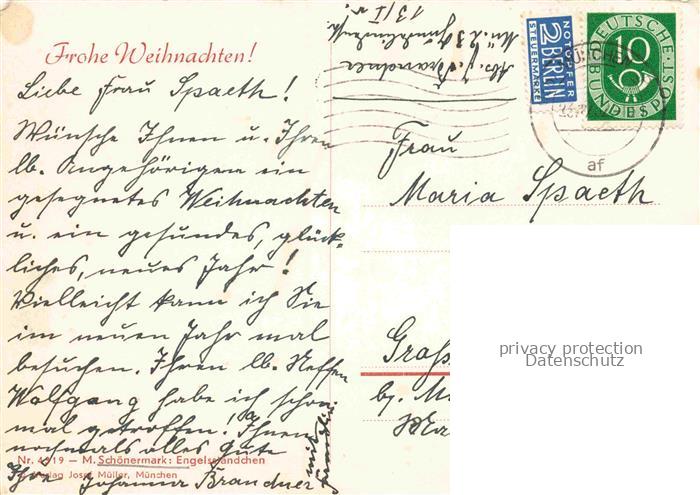 Frohe Weihnachten!
Liebe Frau Spaeth!
Wünsche Ihnen u. Ihren
lb. Angehörigen ein
gesegnetes Weihnachten
u. ein gesundes, glück-
liches, neues Jahr!
Vielleicht kann ich Sie
im neuen Jahr mal
besuchen. Ihren lb. Neffen
Wolfgang habe ich schon
mal getroffen! Ihnen
nochmals alles Gute
Ihre Johanna Brandner
Nr. 4919 – M. Schönermark: Engelsständchen
Verlag Josef Müller, München
Abs. J. Brandner
Mü. 23
13/I
NOTOPFER
2 BERLIN
STEUERMARKE
DEUTSCHE
10
BUNDESPOST
af
Frau
Maria Spaeth
Groß
by. M
privacy protection
Datenschutz